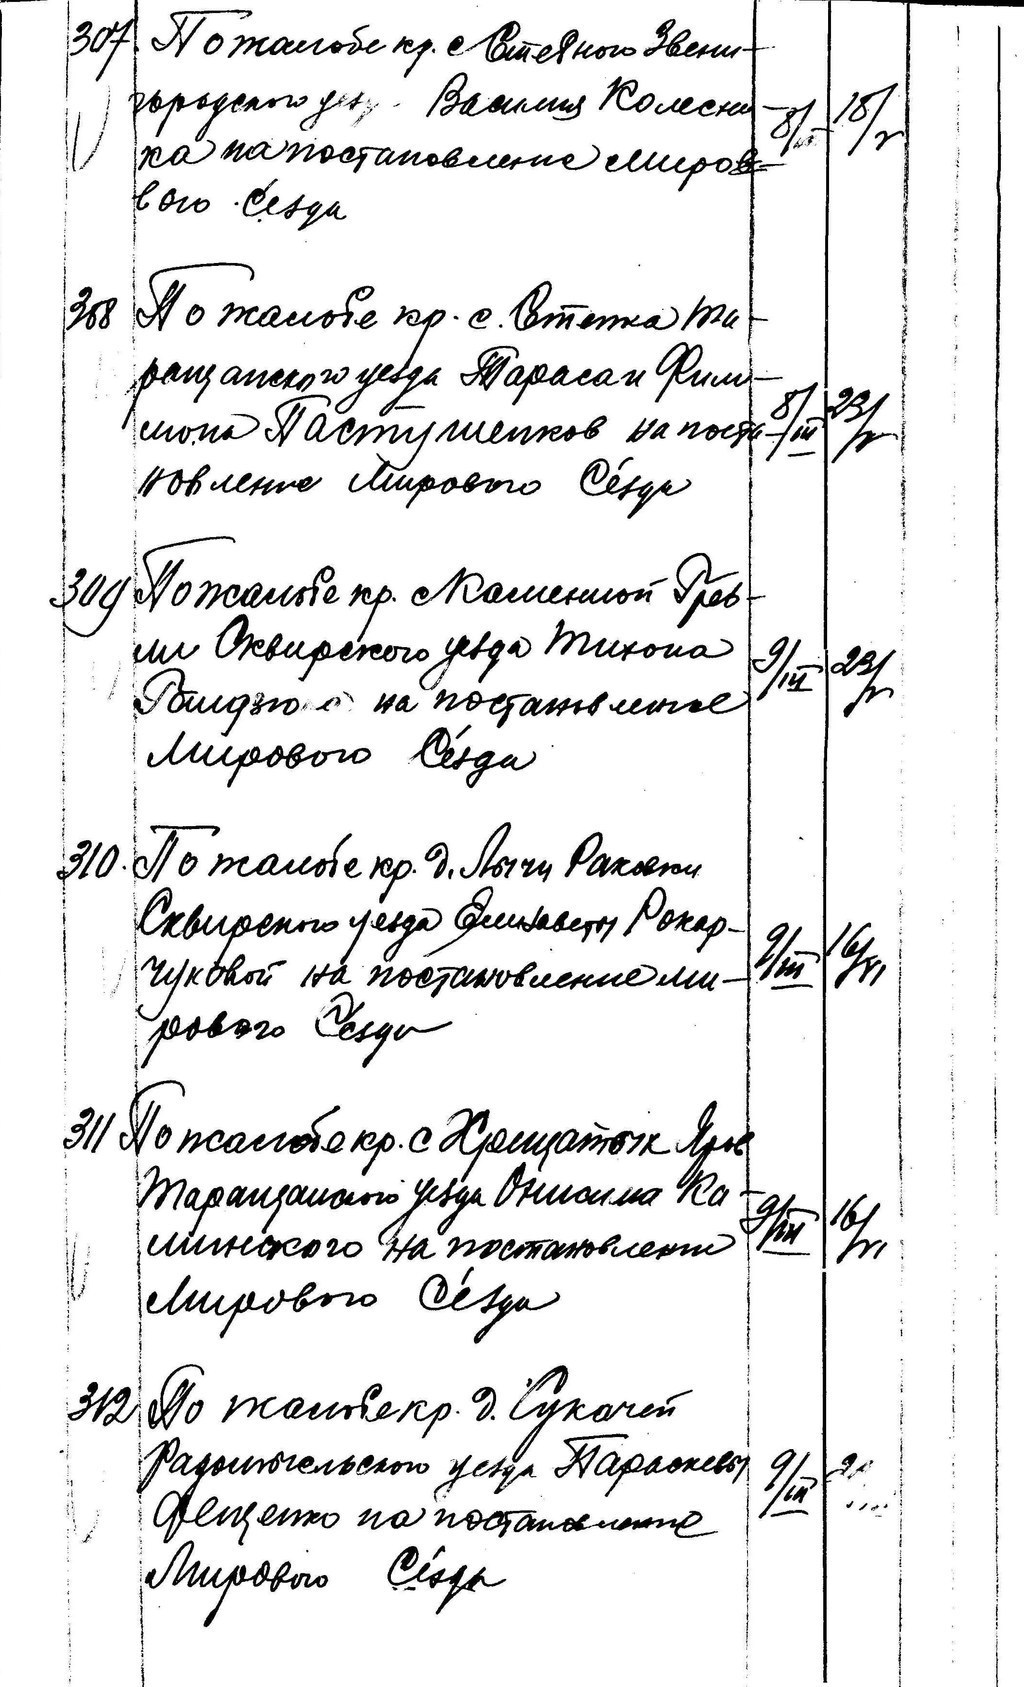 307 По жалобе кр. с Степного Звени-
городского уез. Василия Колесни- 8/III 18/V
ка на постановление Миров-
вого Сезда
308 По жалобе кр. с. Степка Та-
ращанского уезда Тараса и Фили-
мона Пастушенков на поста- 8/III 23/V
новление Мирового Сезда
309 По жалобе кр. с Каменной Греб-
ли Сквирского уезда Тихона 9/III 23/V
на постановление
Мирового Сезда
310. По жалобе кр. д. Лычи
Сквирского уезда Елизаветы Рокар-
чуковой на постановление Ми- 9/III 16/VI
рового Сезда
311 По жалобе кр. с Хрещатых Яров
Таращанского уезда Онисима Ка-
минского на постановление 9/III 16/VI
Мирового Сезда
312 По жалобе кр. д. Сукачей
Радомысльского уезда Параскевы 9/III
Фещенко на постановление
Мирового Сезда